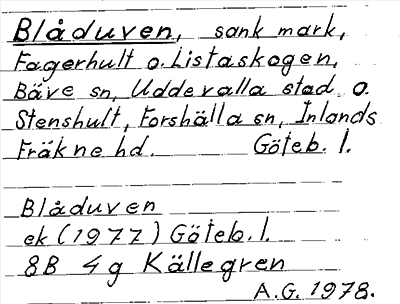 Blåduven, sank mark,
Fagerhult o. Listaskogen,
Bäve sn, Uddevalla stad o.
Stenshult, Forshälla sn, Inlands
Fräkne hd. Göteb. l.
Blåduven
ek (1977) Göteb. l.
8B 4g Källegren
A.G. 1978.